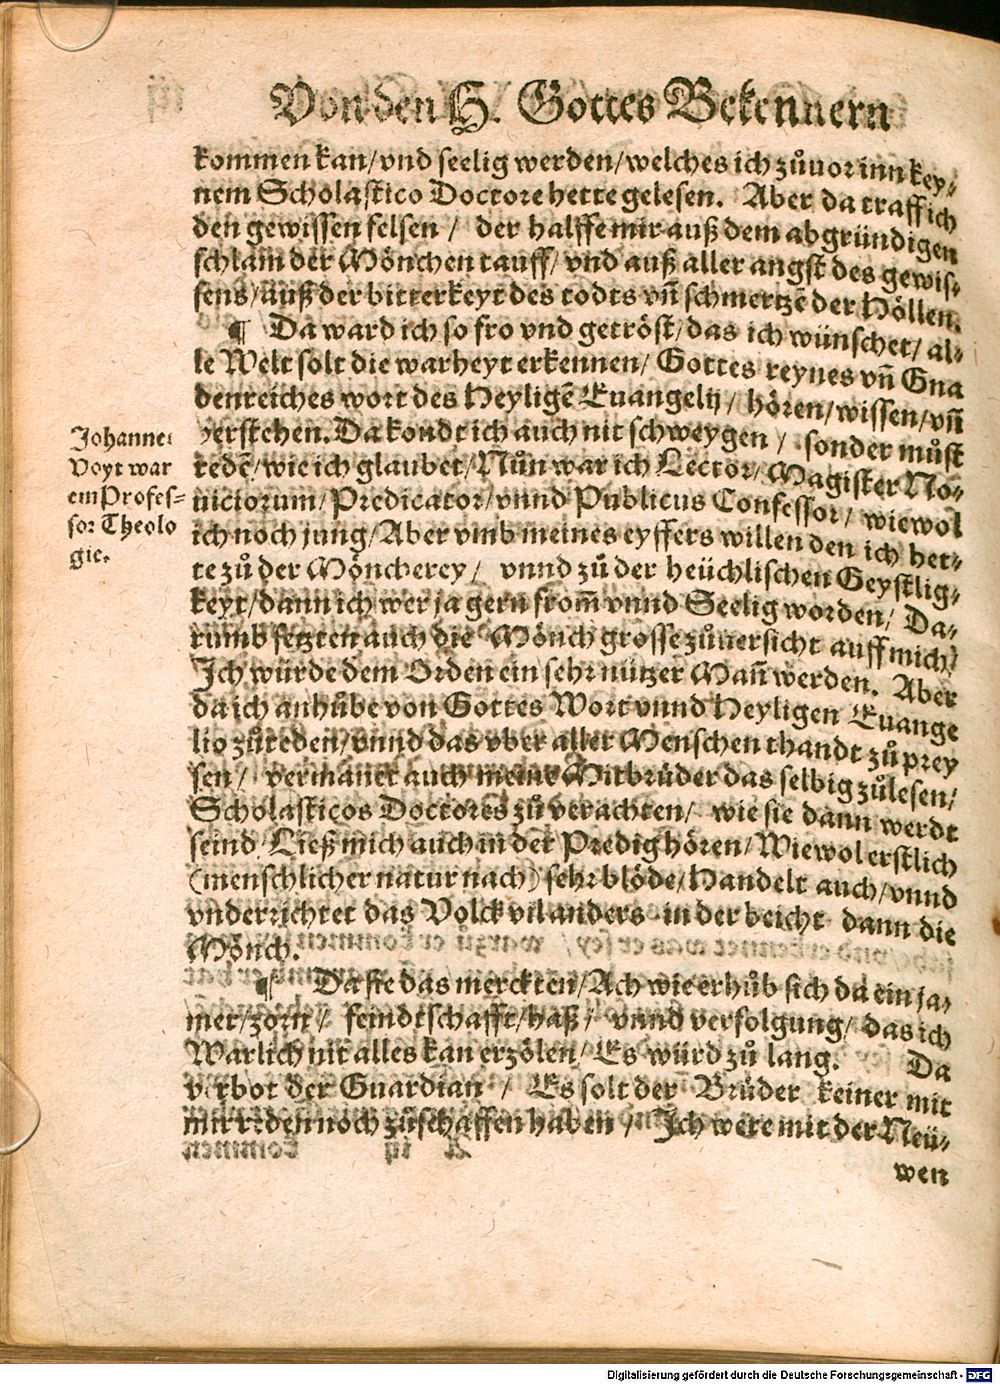 Von den H. Gottes Bekennern
kommen kan/vnd seelig werden/welches ich zůuor inn key-
nem Scholastico Doctore hette gelesen. Aber da traff ich
den gewissen felsen / der halffe mir auß dem abgründigen
schlam der Mönchen tauff/ vnd auß aller angst des gewis-
sens/auß der bitterkeyt des todts vñ schmertzẽ der Höllen.
¶ Da ward ich so fro vnd getröst/das ich wünschet/ al-
le Welt solt die warheyt erkennen/ Gottes reynes vñ Gna
denreiches wort des Heyligẽ Euangelij / hören/wissen/vñ
verstehen. Da kondt ich auch nit schweygen / sonder můst
redẽ/wie ich glaubet/Nůn war ich Lector/ Magister No-
uiciorum/Predicator/vnnd Publicus Confessor/ wiewol
ich noch jung/Aber vmb meines eyffers willen den ich het-
te zů der Möncherey / vnnd zů der heüchlischen Geystlig-
keyt/dann ich wer ja gern from̃ vnnd Seelig worden/ Da-
rumb setzten auch die Mönch grosse zůuersicht auff mich/
Ich würde dem Orden ein sehr nützer Mañ werden. Aber
da ich anhůbe von Gottes Wort vnnd Heyligen Euange
lio zůreden/vnnd das vber aller Menschen thandt zů prey
sen/ vermanet auch meine Mitbrüder das selbig zůlesen/
Scholasticos Doctores zů verachten/ wie sie dann werdt
seind/Ließ mich auch in der Predig hören/Wiewol erstlich
(menschlicher natur nach) sehr blöde/Handelt auch/vnnd
vnderrichtet das Volck vil anders in der beicht dann die
Mönch.
¶ Da sie das merckten/Ach wie erhůb sich da ein ja-
mer/zorn / feindtschafft/haß / vnnd verfolgung/ das ich
Warlich nit alles kan erzölen/ Es würd zů lang. Da
verbot der Guardian / Es solt der Brüder keiner mit
mir reden noch zůschaffen haben / Ich were mit der Neü-
wen
Johannes
Voyt war
ein Profes-
sor Theolo
gie.
Digitalisierung gefördert durch die Deutsche Forschungsgemeinschaft - DFG